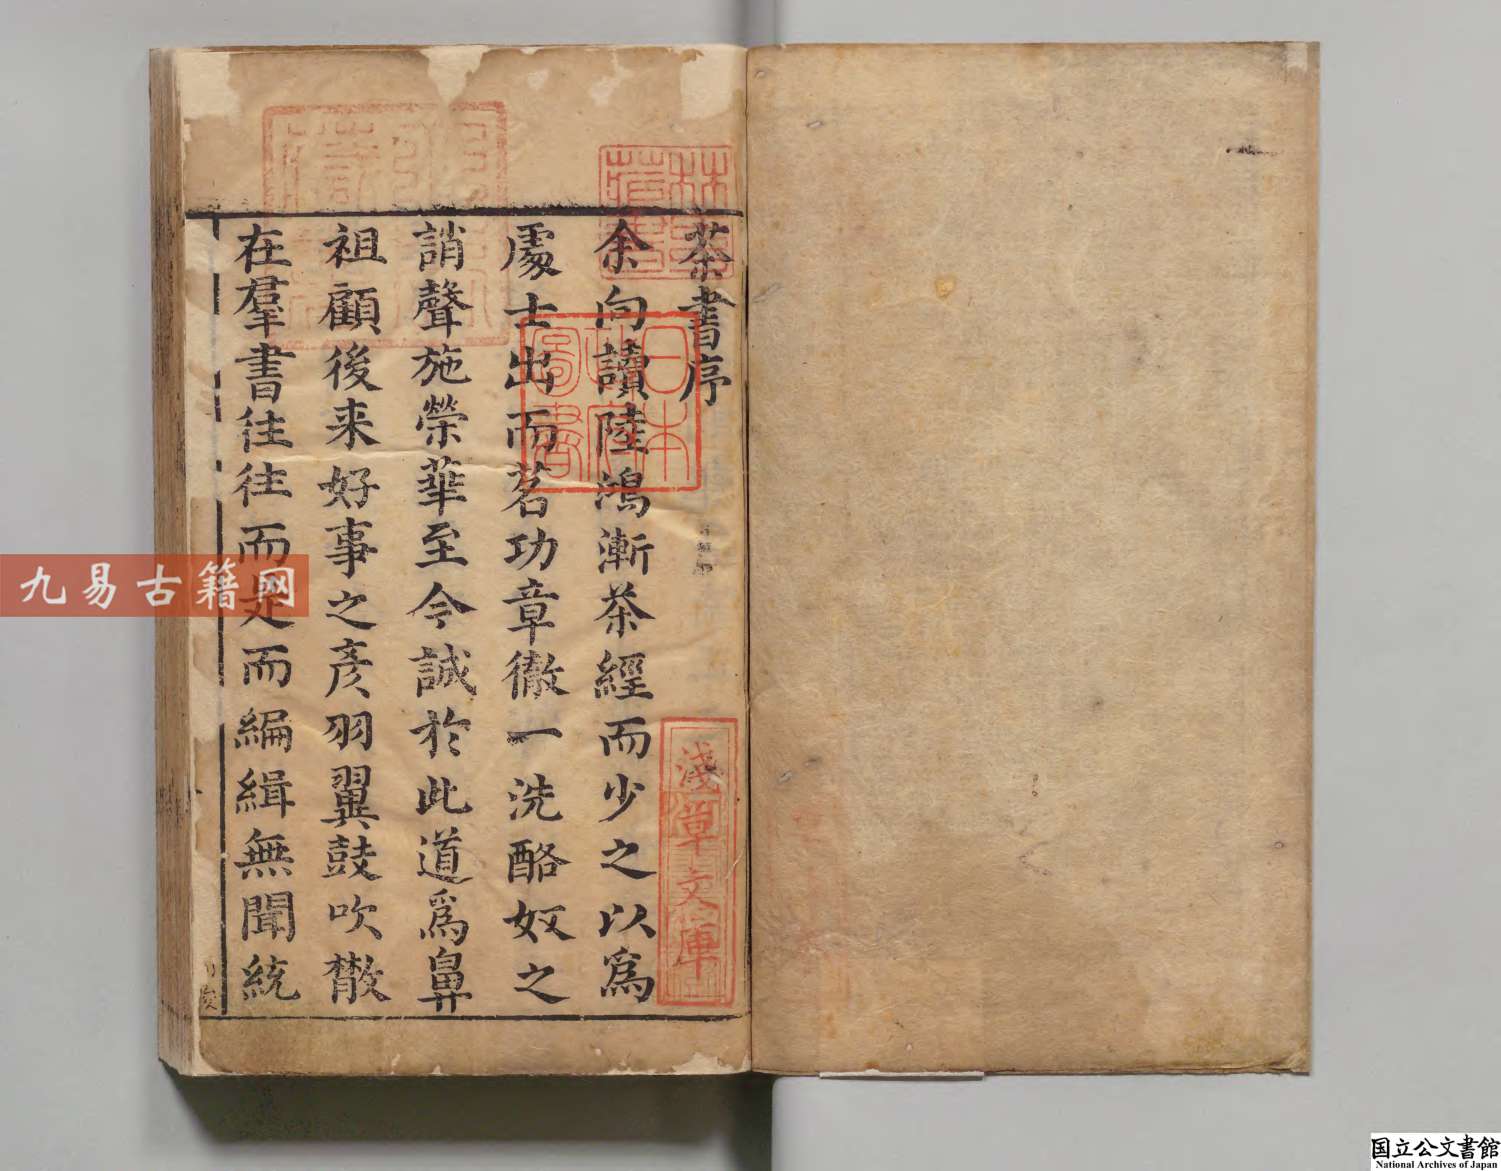 茶書序
余向讀陸鴻漸茶經而少之以為
處士出而茗功章徹一洗酪奴之
誚聲施榮華至今誠於此道為鼻
祖顧後来好事之彦羽翼鼓吹散
在羣書往往而是而編緝無聞統
日本
圖書
淺草文庫
林氏
藏書
九易古籍网
国立公文書館
National Archives of Japan